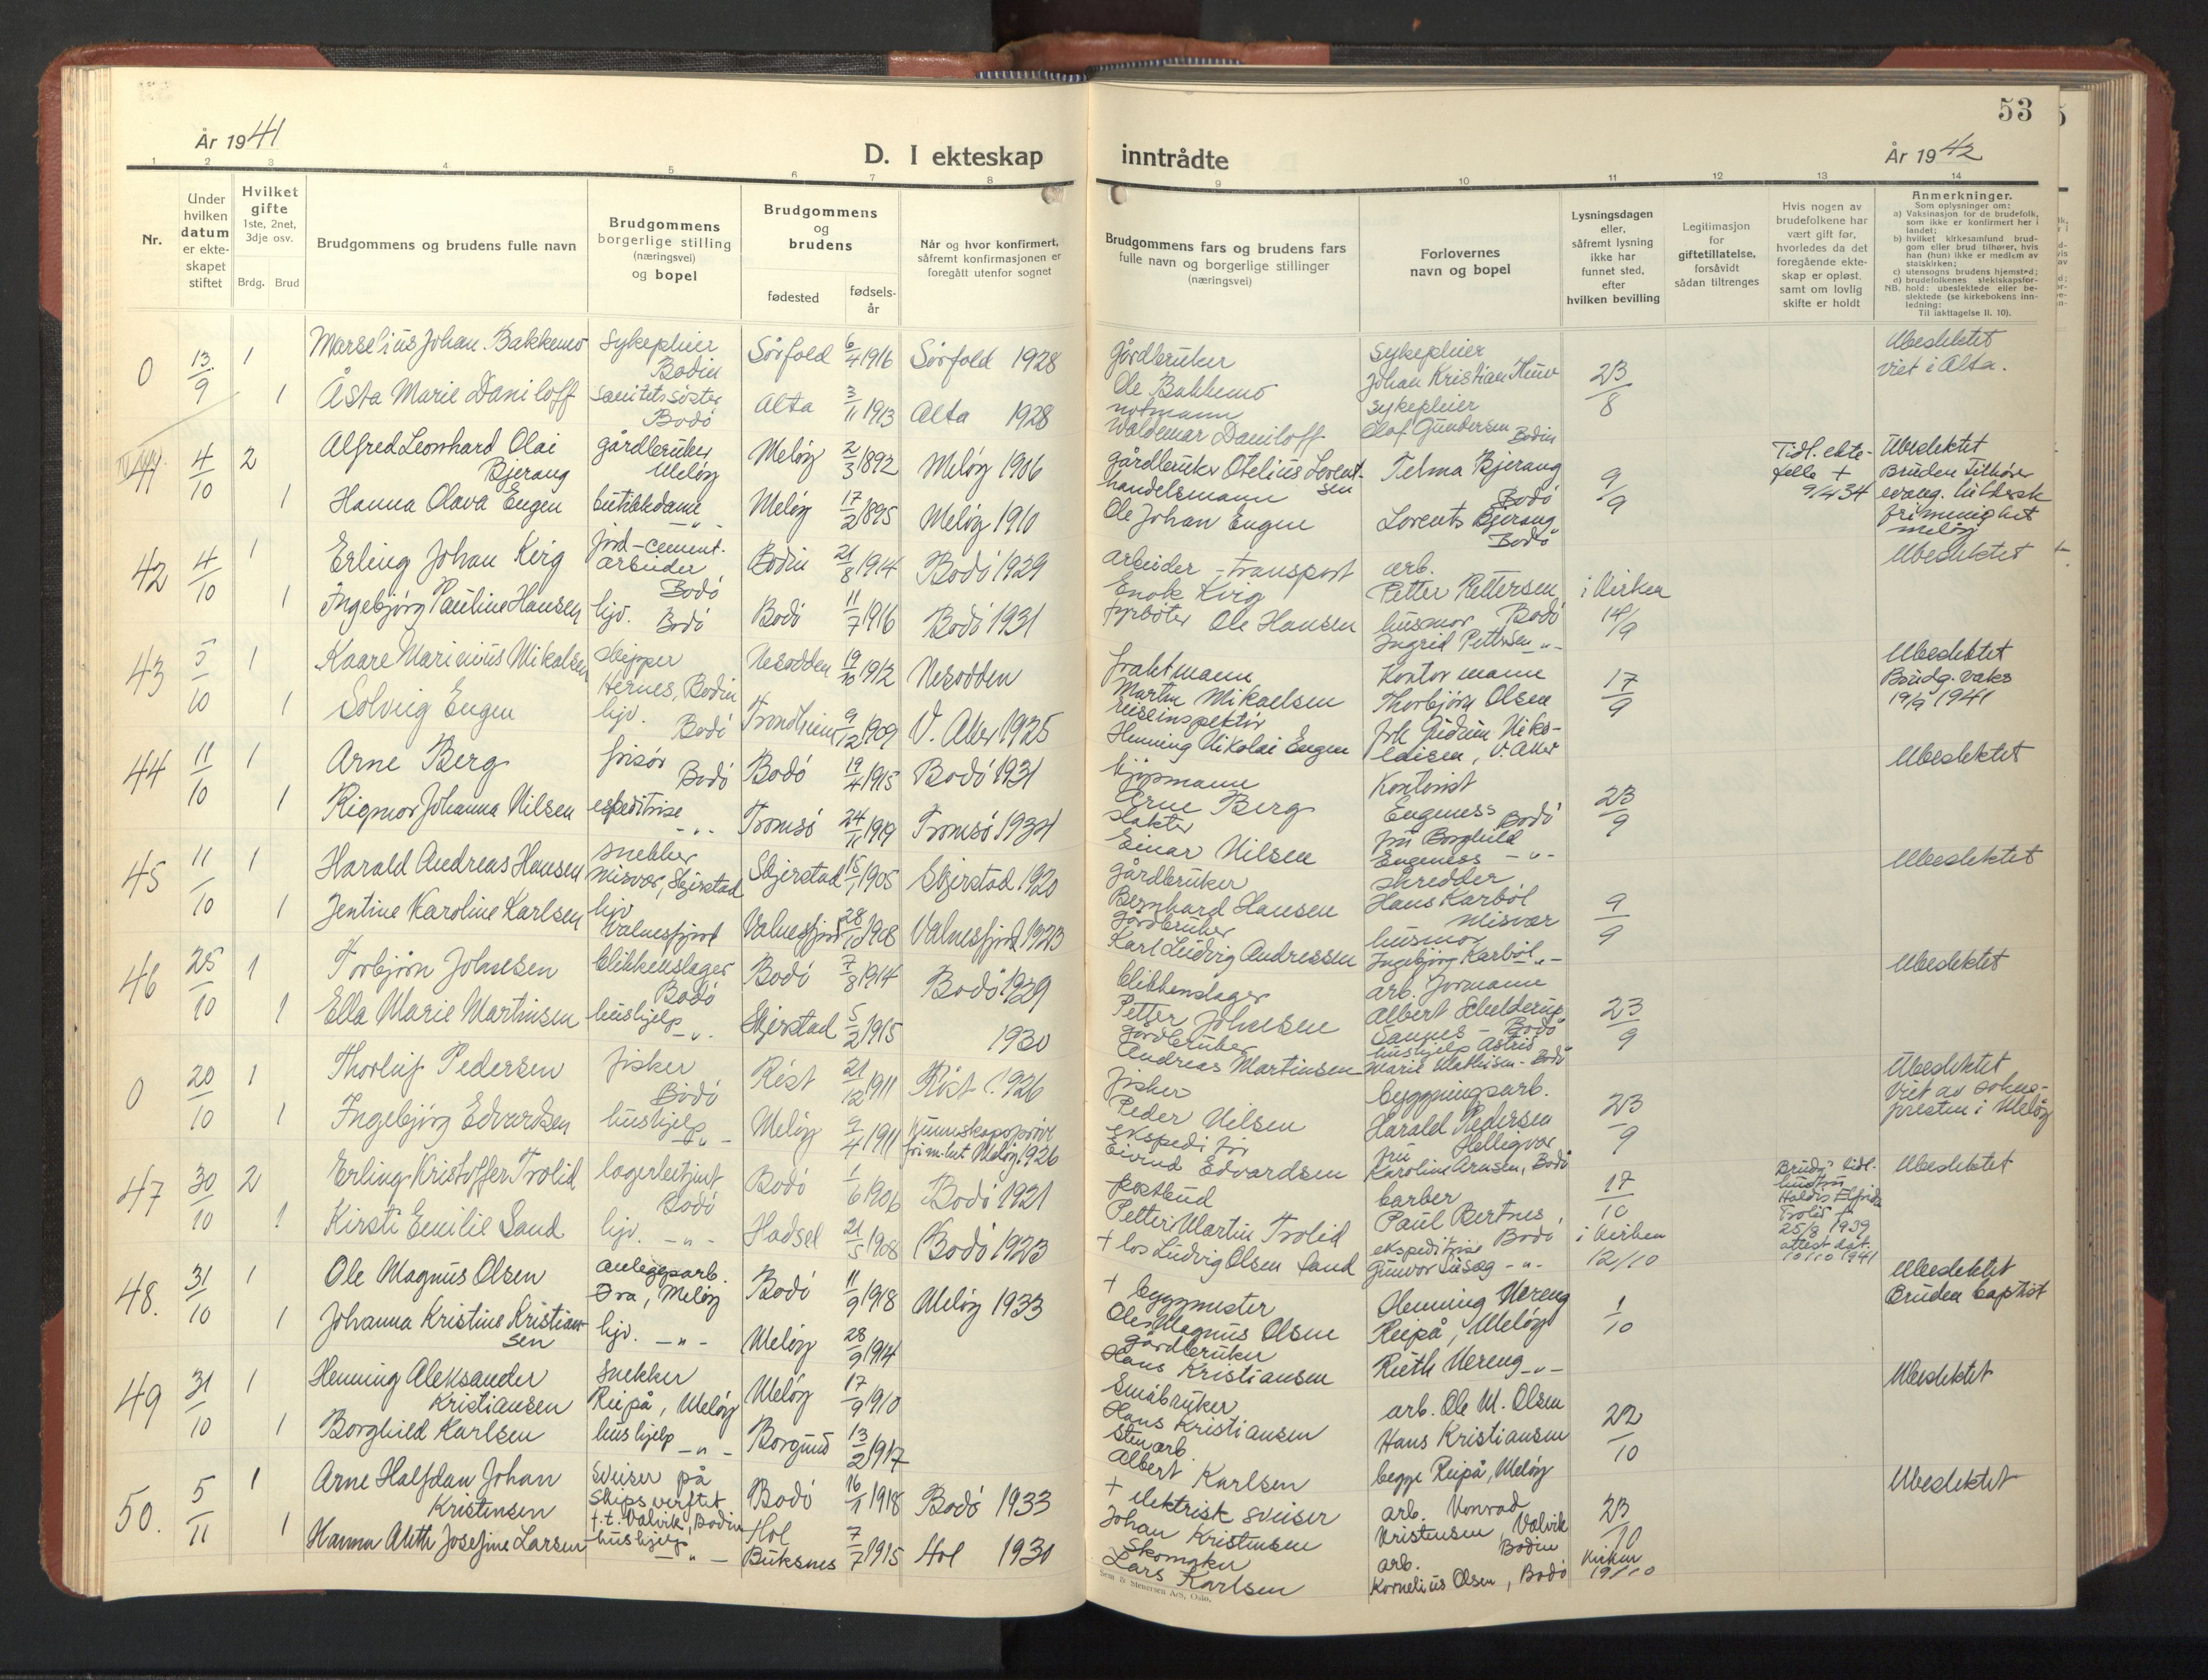 53
År 1941
D. I ekteskap
inntrådte
År 1942
1 2 3 4 5 6 7 8 9 10 11 12 13 14
Nr.
Under
hvilken
datum
er ekte-
skapet
stiftet
Hvilket
gifte
1ste, 2net,
3dje osv.
Brdg. Brud
Brudgommens og brudens fulle navn
Brudgommens
borgerlige stilling
(næringsvei)
og bopel
Brudgommens
og
brudens
fødested
fødsels-
år
Når og hvor konfirmert,
såfremt konfirmasjonen er
foregått utenfor sognet
Brudgommens fars og brudens fars
fulle navn og borgerlige stillinger
(næringsvei)
Forlovernes
navn og bopel
Lysningsdagen
eller,
såfremt lysning
ikke har
funnet sted,
efter
hvilken bevilling
Legitimasjon
for
giftetillatelse,
forsåvidt
sådan tiltrenges
Hvis nogen av
brudefolkene har
vært gift før,
hvorledes da det
foregående ekte-
skap er opløst,
samt om lovlig
skifte er holdt
Anmerkninger.
Som oplysninger om:
a) Vaksinasjon for de brudefolk,
som ikke er konfirmert her i
landet;
b) hvilket kirkesamfund brud-
gom eller brud tilhører, hvis
han (hun) ikke er medlem av
statskirken;
c) utensogns brudens hjemsted;
d) brudefolkenes slektskapsfor-
NB. hold: ubeslektede eller be-
slektede (se kirkebokens inn-
ledning:
Til iakttagelse II. 10).
0 13/9 1 Marselius Johan Bakkemo sykepleier Bodin Sørfold 6/4 1916 Sørfold 1928
1 Åsta Marie Daniloff Sanitetssøster Bodø Alta 3/11 1913 Alta 1928
gårdbruker
Ole Bakkemo
notmann
Waldemar Daniloff
sykepleier
Johan Kristian
sykepleier
Olaf Gundersen Bodin
23/8
Ubeslektet
viet i Alta.
41 4/10 2 Alfred Leonhard Olai Bjerang gårdbruker Meløy Meløy 2/3 1892 Meløy 1906
1 Hanna Olava Engen butikkdame -"- Meløy 17/2 1895 Meløy 1910
gårdbruker Otelius Lorent-
sen
handelsmann
Ole Johan Engen
Telma Bjerang
Bodø
Lorents Bjerang
Bodø
9/9
Tidl. ekte-
felle +
9/4 34
Ubeslektet
Bruden tilhører
evang. luthersk
frimenighet
Meløy
42 4/10 1 Erling Johan Kvig jord-cement. arbeider Bodø Bodin 21/8 1914 Bodø 1929
1 Ingebjørg Pauline Hansen hjv. Bodø Bodø 11/7 1916 Bodø 1931
arbeider - transport
Enok Kvig
fyrbøter Ole Hansen
arb.
Petter Pettersen
husmor Bodø
Ingrid Pettersen -"-
i Kirken
14/9
Ubeslektet
43 5/10 1 Kaare Marinius Mikalsen skipper Hernes, Bodin Nesodden 19/10 1912 Nesodden
1 Solveig Engen hjv. Bodø Trondheim 9/12 1909 V. Aker 1925
fraktmann
Martin Mikaelsen
reiseinspektør
Henning Nikolai Engen
Kontormann
Thorbjørn Olsen
frk Gudrun Niko-
leisen, V. Aker
17/9
Ubeslektet
Brudg. vaks
19/9 1941
44 11/10 1 Arne Berg frisør Bodø Bodø 19/4 1915 Bodø 1931
1 Rigmor Johanna Nilsen espeditrise -"- Tromsø 24/11 1919 Tromsø 1934
kjøpmann
Arne Berg
slakter
Einar Nilsen
Kontorist
Engeness Bodø
fru Borghild
Engeness -"-
23/9
Ubeslektet
45 11/10 1 Harald Andreas Hansen snekker Misvær, Skjerstad Skjerstad 15/1 1905 Skjerstad 1920
1 Jentine Karoline Karlsen hjv Valnesfjord Valnesfjord 28/10 1908 Valnesfjord 1923
gårdbruker
Bernhard Hansen
gårdbruker
Karl Ludvig Andressen
skredder
Hans Karbøl
Misvær
husmor
Ingebjørg Karbøl -"-
9/9
Ubeslektet
46 25/10 1 Torbjørn Johnsen blikkenslager Bodø Bodø 7/8 1914 Bodø 1929
1 Ella Marie Martinsen hushjelp -"- Skjerstad 5/2 1915 1930
blikkenslager
Petter Johnsen
gårdbruker
Andreas Martinsen
arb. formann
Albert Schelderup
Sannes - Bodø
hushjelp Astrid
Marie Mathisen - Bodø
23/9
Ubeslektet
0 20/10 1 Thorleif Pedersen fisker Bodø Røst 21/12 1911 Røst 1926
1 Ingebjørg Edvardsen hushjelp -"- Meløy 9/4 1911 Kunnskapsprøve
frim.lut Meløy 1926
fisker
Peder Nilsen
ekspeditør
Eivind Edvardsen
byggningsarb.
Harald Pedersen
fru Helligvær
Karoline Arnsen, Bodø
23/9
Ubeslektet
Viet av sokne-
presten i Meløy
47 30/10 2 Erling Kristoffer Trolid lagerbetjent Bodø Bodø 1/6 1906 Bodø 1921
1 Kirsti Emilie Sand hjv. -"- Hadsel 21/5 1908 Bodø 1923
postbud
Petter Martin Trolid
+ los Ludvig Olsen Sand
barber
Paul Bertnes
ekspeditrise Bodø
Gunvor -"-
17/10
i Kirken
12/10
Brudg. tidl.
hustru
Haldis Elfrida
Trolid +
25/8 1939
attest dat.
10/10 1941
Ubeslektet
48. 31/10 1 Ole Magnus Olsen anleggsarb. Øra, Meløy Bodø 11/9 1918 Meløy 1933
1 Johanna Kristine Kristian-
sen hjv. -"- Meløy 28/9 1914
+ byggmester
Ole Magnus Olsen
gårdbruker
Hans Kristiansen
Henning Vereng
Reipå, Meløy
Ruth Vereng -"-
1/10
Ubeslektet
Bruden baptist
49 31/10 1 Henning Aleksander
Kristiansen snekker Reipå, Meløy Meløy 17/9 1910
1 Borghild Karlsen hushjelp -"- Borgund 13/2 1917
Småbruker
Hans Kristiansen
Stenarb.
Albert Karlsen
arb. Ole M. Olsen
Hans Kristiansen
begge Reipå, Meløy
22/10
Ubeslektet
50. 5/11 1 Arne Halfdan Johan
Kristensen sveiser på
Skipsverftet
t.t. Valvik, Bodin Bodø 16/11 1918 Bodø 1933
1 Hanna Aleth Josefine Larsen hushjelp -"- Hol
Buksnes 7/7 1915 Hol 1930
+ elektrisk sveiser
Johan Kristensen
Skomaker
Lars Karlsen
arb. Konrad
Kristensen, Valvik
Bodin
arb.
Kornelius Olsen, Bodø
23/10
Kirken
19/10
Ubeslektet
Sem & Stenersen A/S, Oslo.